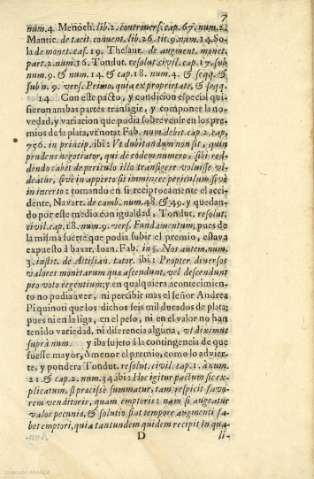 7
num. 4. Menoch. lib. 2. controvers. cap. 67. num. 2.
Mantic. de tacit. convent. lib. 26. tit. 9. num. 14. So-
la de monet. cas. 19. Thesaur. de augment. monet.
part. 2. num. 16. Tondut. resolut. civil. cap. 17. sub
num. 9. & num. 14. & cap. 18. num. 4. & seqq. &
sub n. 9. vers. Primo, quia ex proprietate, & seqq.
14. Con este pacto, y condicion especial qui-
sieron ambas partes transigir, y componer la no-
vedad, y variacion que podia sobrevenir en los pre-
mios de la plata, ut notat Fab. num. debit. cap. 2. cap.
756. in princip. ibi: Vt dubitandum non sit, quin
prudens negotiator, qui de eodem numero, sibi red-
dendo cabet de periculo illo transigere voluisse vi-
deatur, sive in aperto sit imminens periculum sive
in incerto: tomando en si reciprocamente el acci-
dente, Navarr. de camb. num. 48. & 49. y quedan-
do por este medio con igualdad, Tondut. resolut.
civil. cap. 18. num. 9. vers. Fundamentum, pues de
la misma fuerte que podia subir el premio, estava
expuesto à baxar, Ioan. Fab. in §. Nos autem. num.
3. instit. de Attilian. tutor. ibi: Propter diversos
valores monitarum qua ascendunt, vel descendunt
pro voto regentium; y en qualquiera acontecimien-
to no podia aver, ni percibir mas el señor Andrea
Piquinoti que los dichos seis mil ducados de plata;
pues ni en la liga, en el peso, ni en el valor no han
tenido variedad, ni diferencia alguna, ut diximus
suprà num. y iba sujeto à la contingencia de que
fuesse mayor, ò menor el premio, como lo advier-
te, y pondera Tondut. resolut. civil. cap. 1. à num.
21. & cap. 2. num. 34. ibi: Hoc igitur pactum sic ex-
plicatum, si præcisè summatur, tam respicit favo-
rem venditoris, quam emptoris: nam si augeatur
valor pecuniæ, & solutio fiat tempore augmenti fa-
bet emptori, quia tantundem quidem recipit in qua-
D
li-